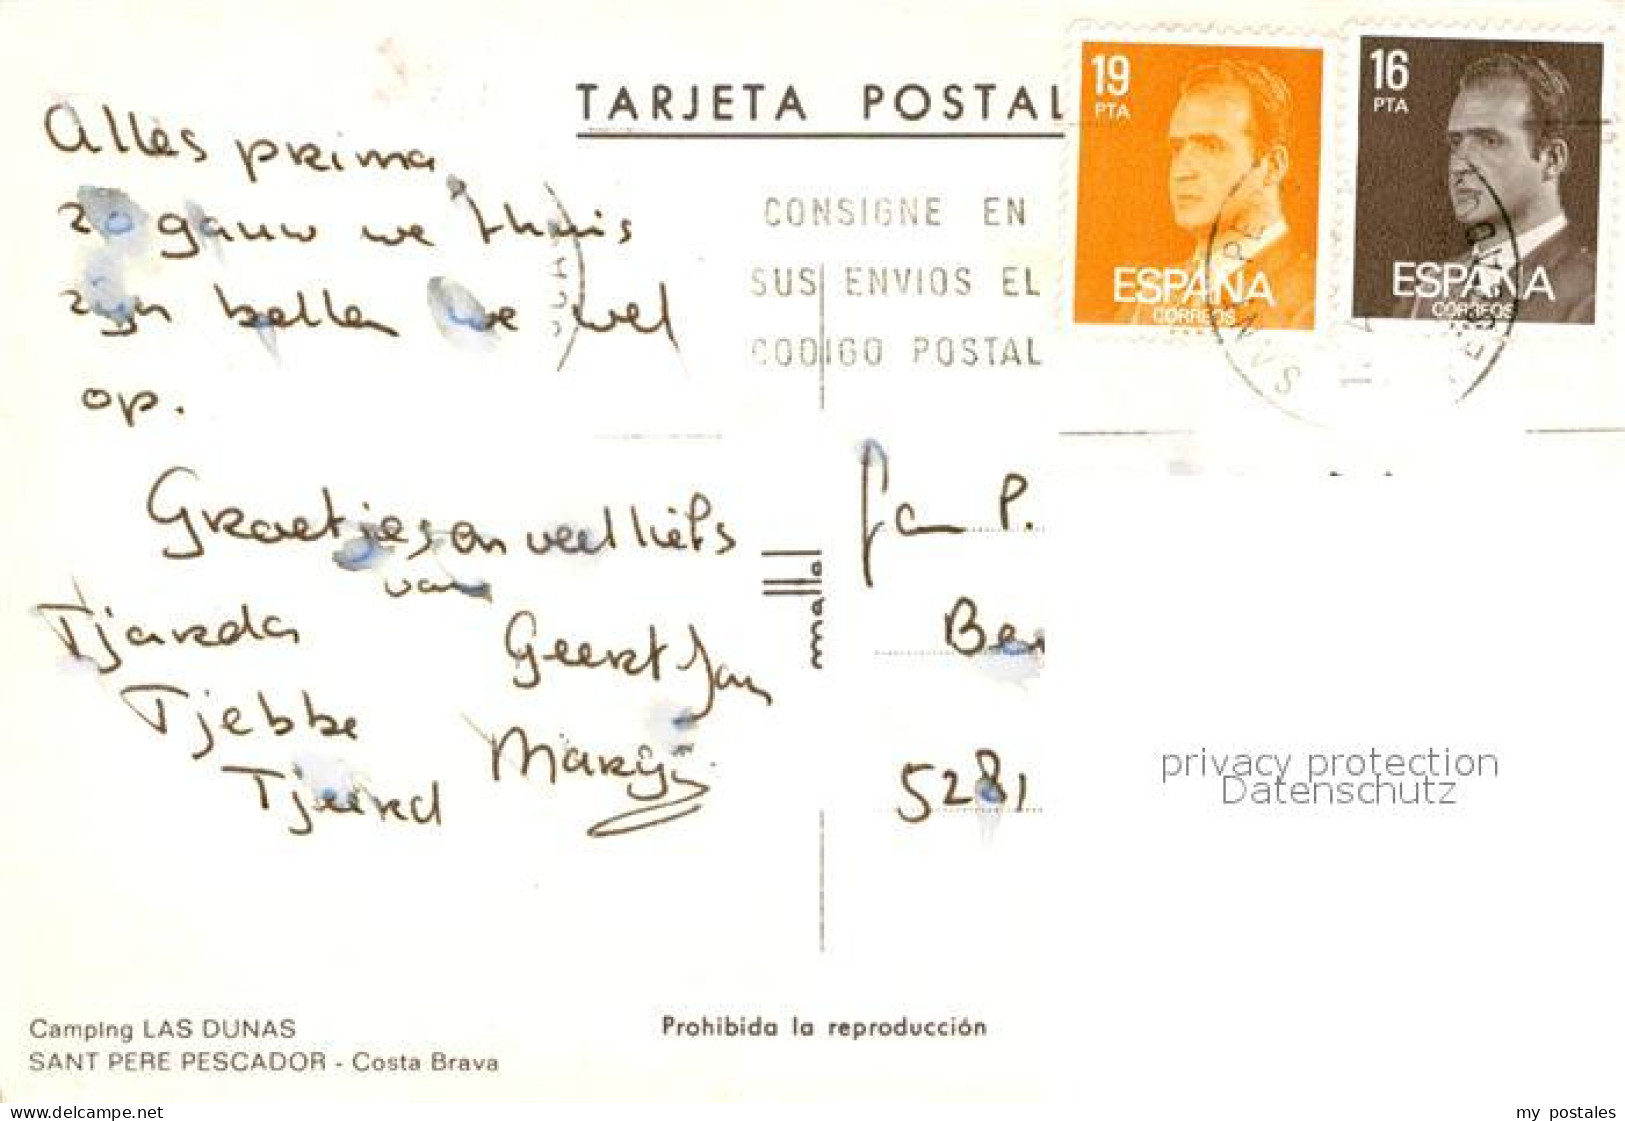 TARJETA POSTAL
19
PTA
ESPAÑA
CORREOS
16
PTA
ESPAÑA
CORREOS
CONSIGNE EN
SUS ENVIOS EL
CODIGO POSTAL
Alles prima
zo gauw we thuis
zijn bellen we wel
op.
Groetjes en veel liefs
van
Tjarda
Geert Jan
Tjebbe
Marijs
Tjeerd
Fam P.
Be
5281
malla
privacy protection
Datenschutz
Camping LAS DUNAS
SANT PERE PESCADOR - Costa Brava
Prohibida la reproducción
www.delcampe.net
my_postales